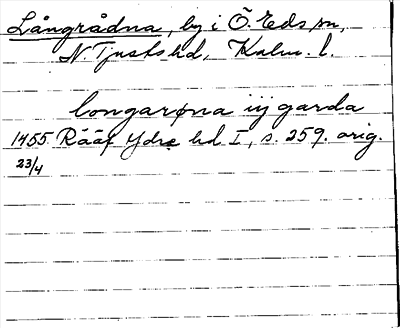 Långrådna, by i Ö. Eds sn,
N. Tjusts hd, Kalm. l.
longarøna iij garda
1455 Rääf Ydre hd I, s. 259. orig.
23/4